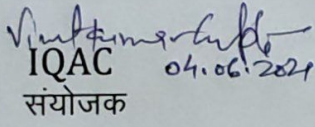 IQAC 04.06.2024
संयोजक